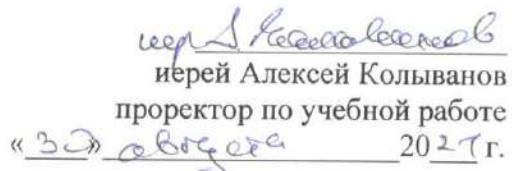 иер
иерей Алексей Колыванов
проректор по учебной работе
«30» августа 2021 г.